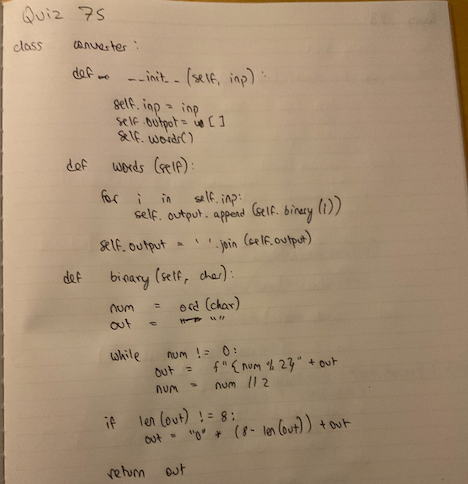 Quiz 75
class converter:
def __init__(self, inp):
self.inp = inp
self.output = []
self.words()
def words (self):
for i in self.inp:
self.output.append (self.binary(i))
self.output = ' '.join (self.output)
def binary (self, char):
num = ord (char)
out = ""
while num != 0:
out = f"{num % 2}" + out
num = num // 2
if len(out) != 8:
out = "0" * (8 - len(out)) + out
return out